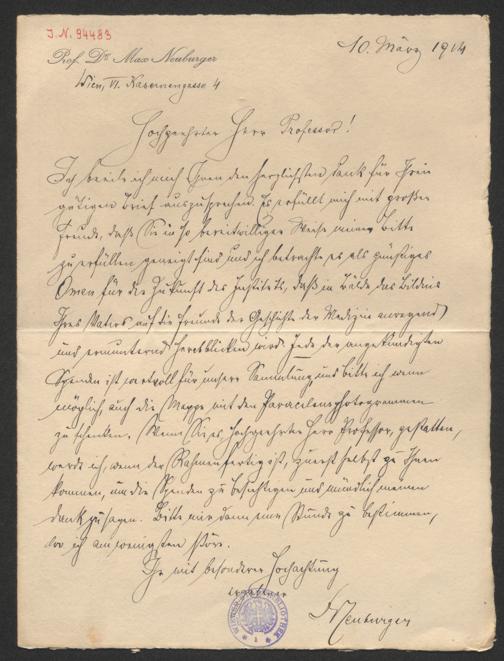 J.N. 94483
10. März 1914
Prof. Dr. Max Neuburger
Wien, VI. Kasernengasse 4
Hochgeehrter Herr Professor!
Ich beeile mich Ihnen den herzlichsten Dank für Ihren
gütigen Brief auszusprechen. Es erfüllt mich mit großer
Freude, daß Sie in so bereitwilliger Weise meine Bitte
zu erfüllen geneigt sind und ich betrachte es als günstiges
Omen für die Zukunft des Instituts, daß in Bälde das Bildnis
Ihres Vaters auf die Freunde der Geschichte der Medizin anregend
und ermunternd herabblicken wird. Jede der angekündigten
Spenden ist wertvoll für unsere Sammlung und bitte ich wenn
möglich auch die Mappe mit den Paracelsusphotogrammen
zu schenken. Wenn Sie es, hochgeehrter Herr Professor, gestatten,
werde ich, wenn der Rahmen fertig ist, zuerst selbst zu Ihnen
kommen, um die Spenden zu besichtigen und mündlich meinen
Dank zu sagen. Bitte mir dann eine Stunde zu bestimmen,
wo ich am wenigsten störe.
Ihr mit besonderer Hochachtung
ergebener
MNeuburger
BIBLIOTHEK